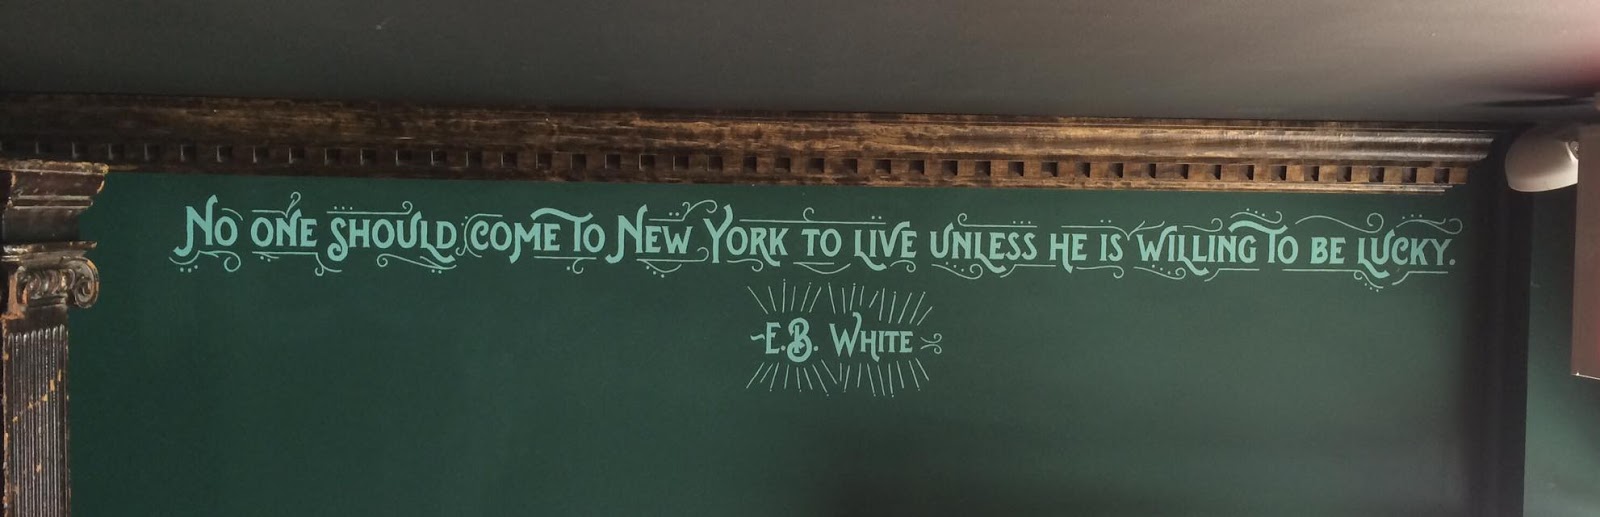 No one should come to New York to live unless he is willing to be lucky.
~E.B. White